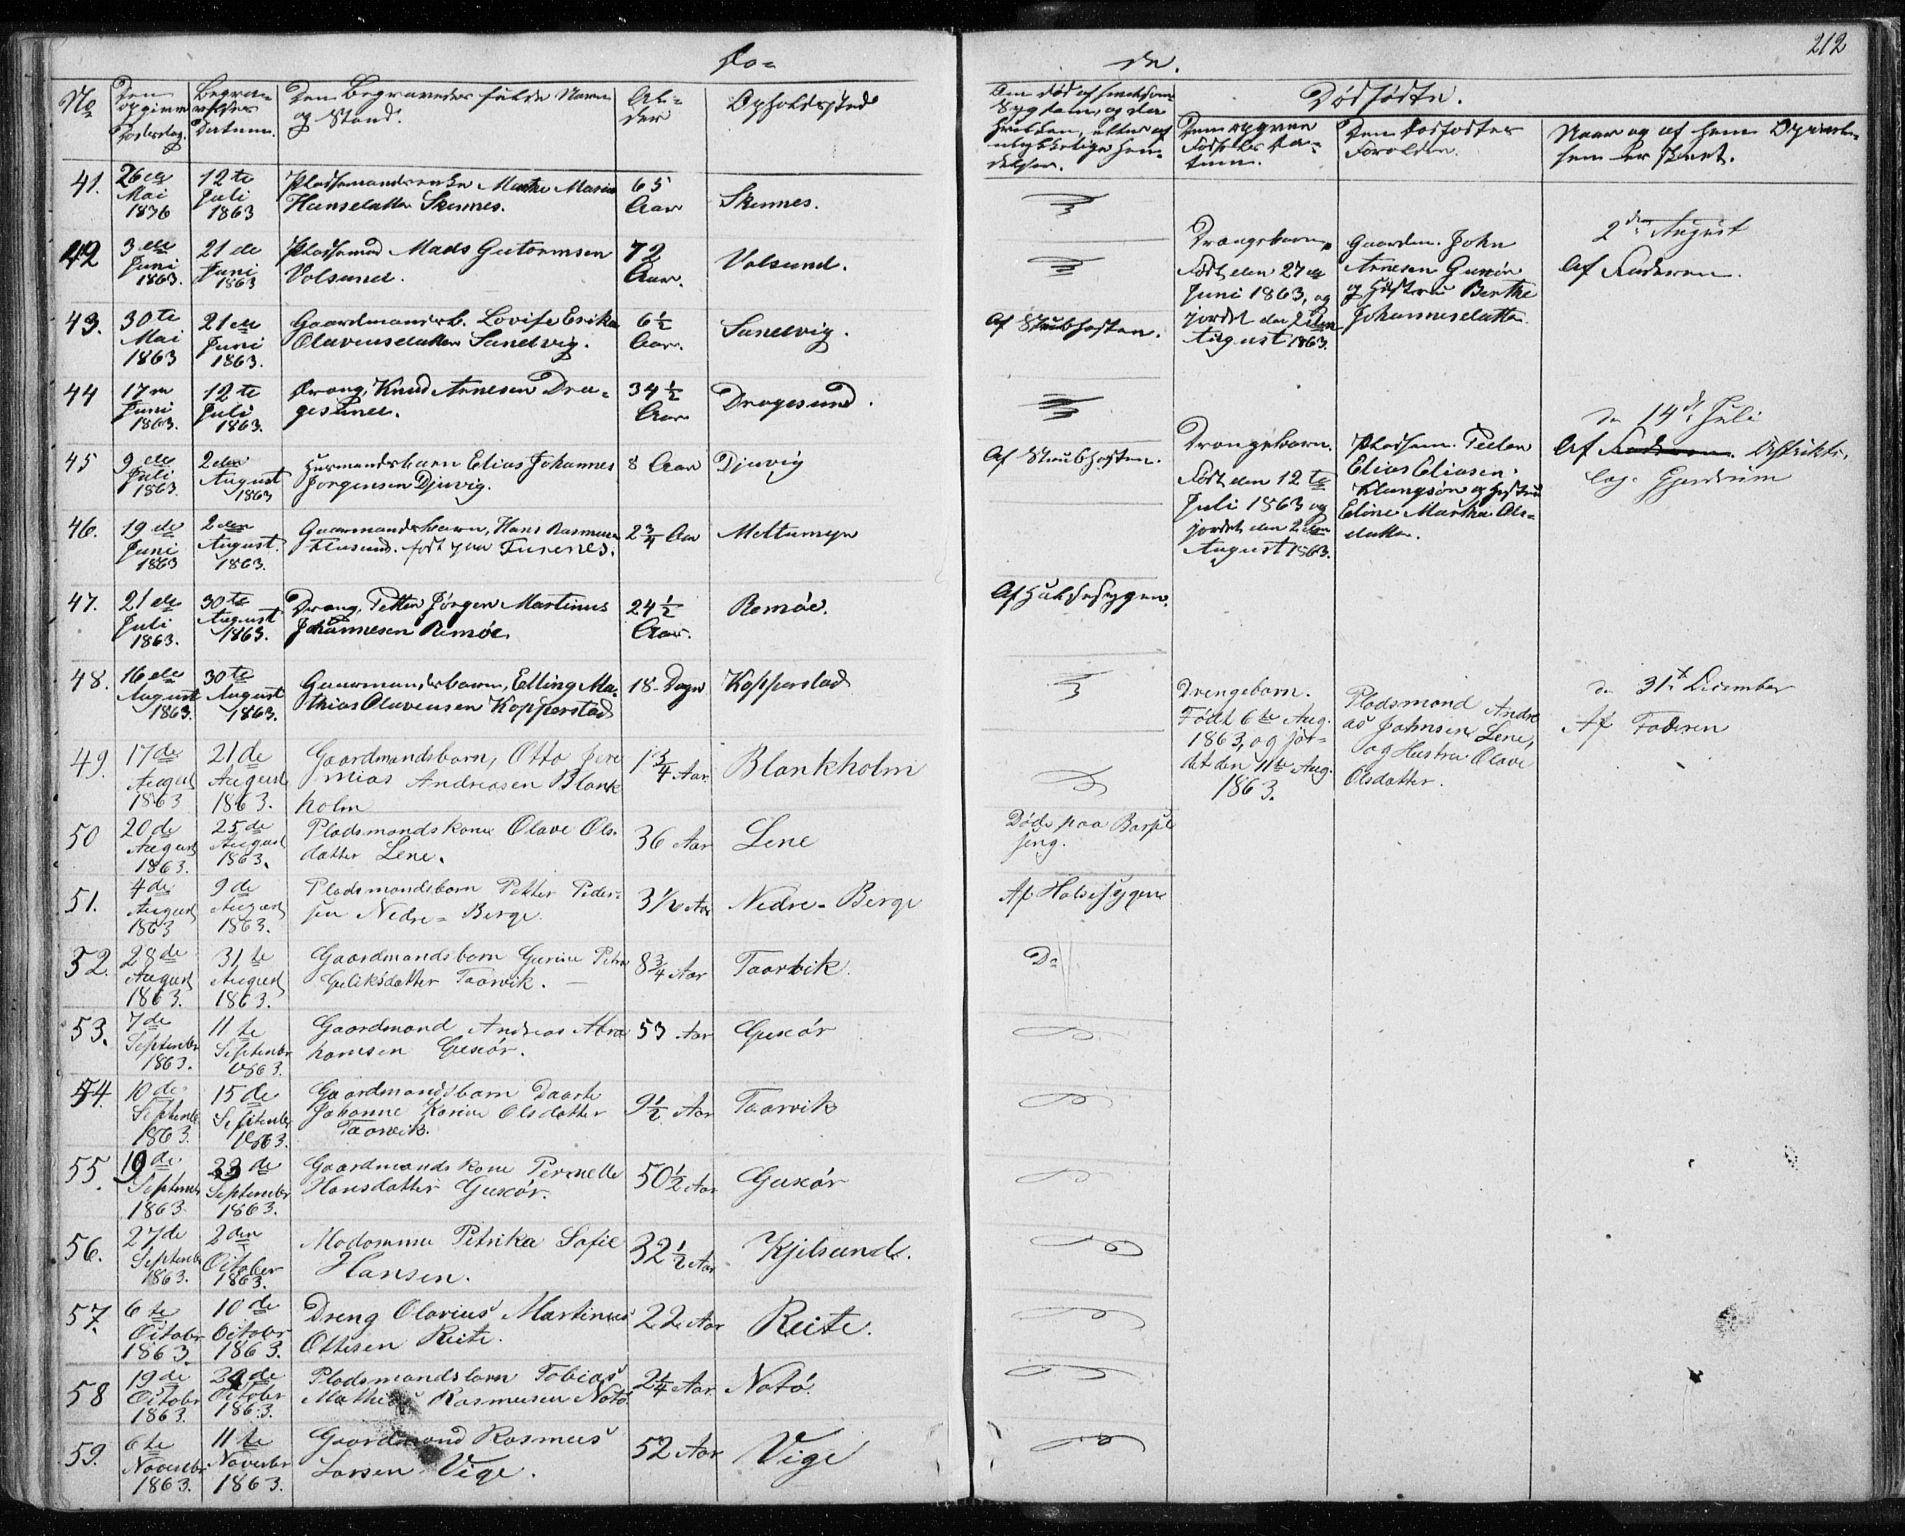 Dø-
de.
212
No
Den opgivne Dødsdag.
Begravelses Datum.
Den Begravedes fulde Navn og Stand.
Alder
Opholdssted
Om død af smitsom Sygdom, og da hvilken, eller af ulykkelige Hændelser.
Dødfødte.
Den opgivne Fødsels Datum.
Den Dødfødtes Forældre.
Naar og af hvem Opvækkelsen er skeet.
41. 26de Mai 1836 12te Juli 1863 Pladsmandsenke Marthe Marie Hansdatter Skinnes. 65 Aar Skinnes.
42 3die Juni 1863. 21de Juni 1863 Pladsmand Mads Gutormsen Volsund. 72 Aar. Volsund.
43. 30te Mai 1863 21de Juni 1863. Gaardmandsb. Lovise Erika Olavensdatter Sandvig. 6½ Aar. Sandvig. Af Strubhosten.
44 17de Juni 1863. 12te Juli 1863. Dreng, Knud Arnesen Dragesund. 34½ Aar Dragesund.
45 9de Juli 1863. 2den August 1863 Huusmandsbarn Elias Johannes Jørgensen Djuvig. 8 Aar Djuvig Af Strubhosten.
46. 19de Juni 1863 2den August 1863. Gaardmandsbarn, Hans Rasmussen Flusund. født paa Furenes. 2¾ Aar Meltumyr
47. 21de Juli 1863. 30te August 1863. Dreng, Petter Jørgen Martinus Johannesen Remøe. 24½ Aar. Remøe. Af Halssygen.
48. 16de August 1863. 30te August 1863. Gaardmandsbarn, Elling Mathias Olavensen Kopperstad 18 Dage Kopperstad
49. 17de August 1863 21de August 1863. Gaardmandsbarn, Otto Jeremias Andreasen Blankholm 1¾ Aar. Blankholm
50 20de August 1863. 25de August 1863. Pladsmandskone Olave Olsdatter Lene. 36 Aar Lene Døde paa Barselseng.
51. 4de August 1863 9de August 1863. Pladsmandsbarn Petter Pedersen Nedre-Berge. 3½ Aar Nedre-Berge Af Halssygen
52. 28de August 1863. 31te August 1863. Gaardmandsbarn Gurine Petra Guliksdatter Taarvik. 8¾ Aar Taarvik. Do
53. 7de September 1863. 11te September 1863. Gaardmand Andreas Abrahamsen Guxør. 53 Aar Guxør
54. 10de September 1863. 15de September 1863. Gaardmandsbarn Daarte Johanne Karine Olsdatter Taarvik. 9½ Aar Taarvik
55. 19de September 1863 23de September 1863. Gaardmandskone Pernelle Hansdatter Guxør. 50½ Aar Guxør
56. 27de September 1863. 2den October 1863. Madamme Petrika Sofie Hansen. 32½ Aar Kjelsund.
57. 6te October 1863. 10de October 1863. Dreng Olavius Martinus Ottesen Reite. 22 Aar Reite.
58 19de October 1863. October 1863. Pladsmandsbarn Tobias Mathias Rasmusen Notø. 2¼ Aar Notø.
59. 6te November 1863. 11te November 1863. Gaardmand Rasmus Larsen Vige. 52 Aar Vige
Drengebarn.
Født den 27de
Juni 1863, og
jordet den 2den
August 1863.
Gaardm. John
Arnesen Guxør
og Hustru Berthe
Johannesdatter.
2den August
Af Faderen.
Drengebarn.
Født den 12te
Juli 1863 og
jordet den 2den
August 1863.
Pladsm. Peder
Elias Eliasen
Klungsør og Hustru
Eline Martha Olsdatter.
den 14de Juli
Af Faderen. Distrikts-
læge Gjerdrum
Drengebarn.
Født 6te Aug.
1863, og jor-
det den 11te Aug.
1863.
Pladsmand Andre
as Johnsen Lene,
og Hustru Olave
Olsdatter.
den 31te December
Af Faderen